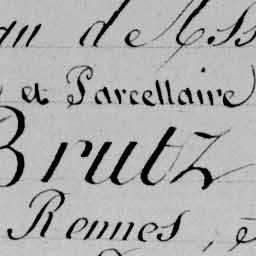 d'Ass
et Parcellaire
Brutz
Rennes,